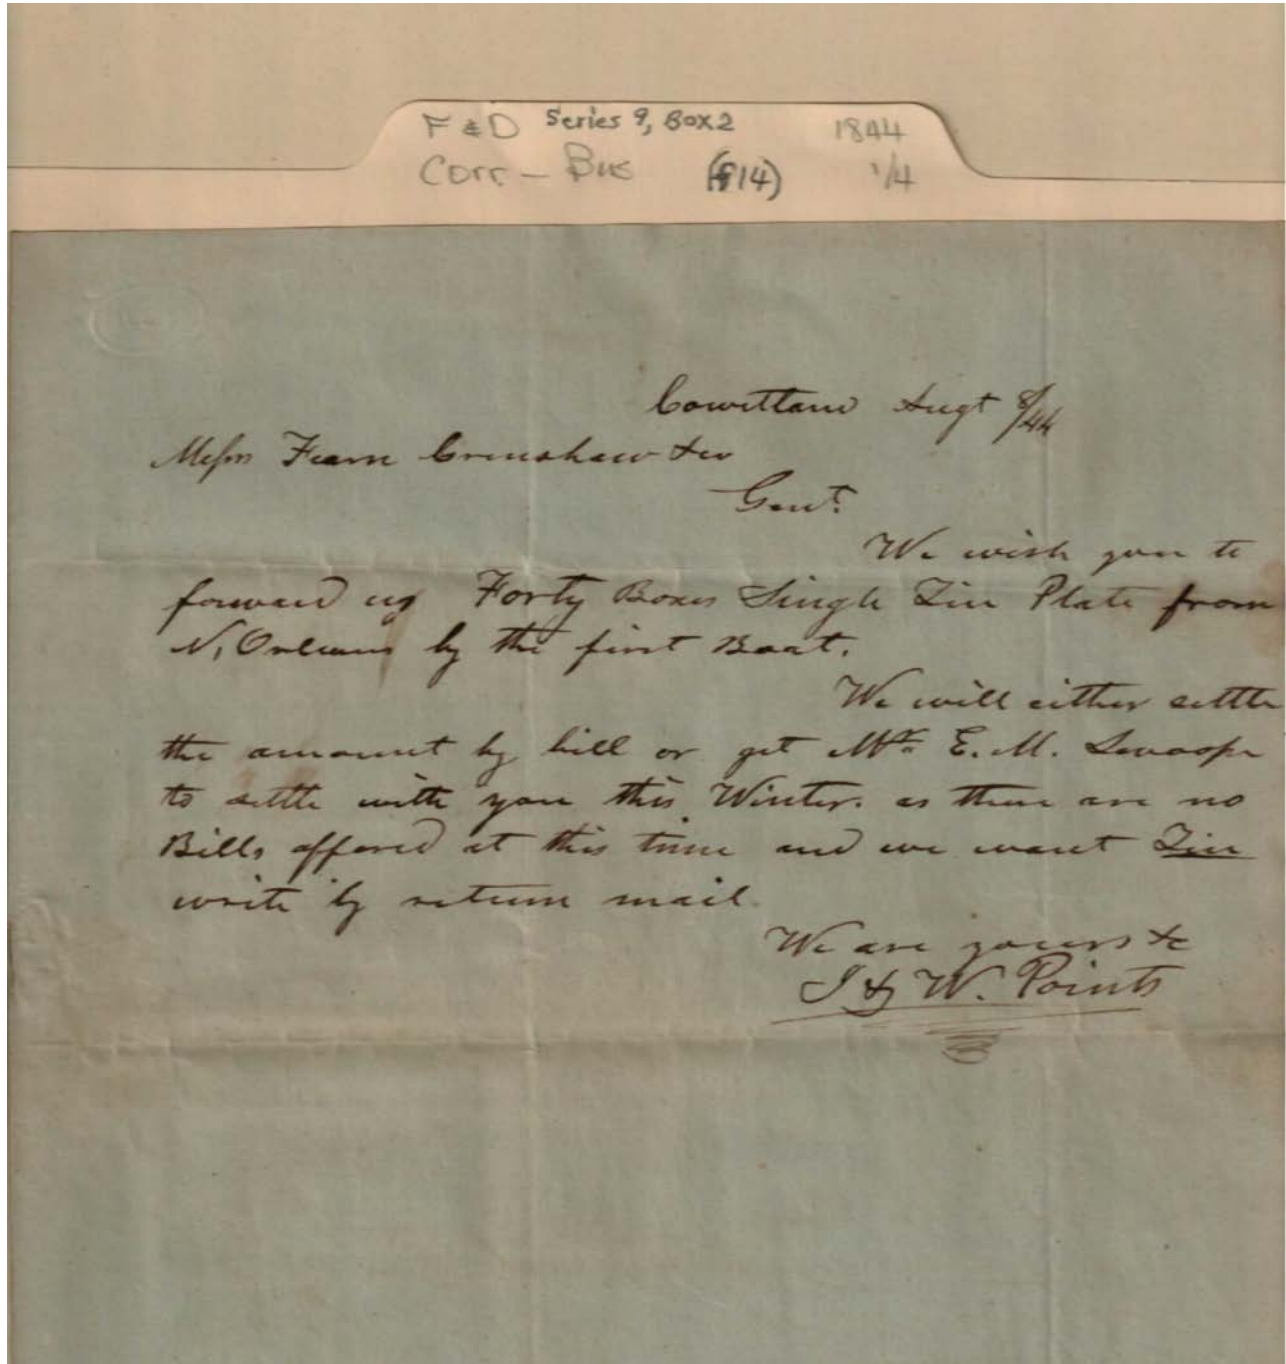 F & D Series 9, Box 2 1844
Corr - Bus (f14) 1/4
Courtland Augt 8/44
Messrs Fearn Crenshaw & co
Gent.
We wish you to
forward us Forty Boxes Single Tin Plate from
N, Orleans by the first Boat.
We will either settle
the amount by bill or get Mr. E. M. Swoope
to settle with you this Winter. as there are no
Bills offered at this time and we want Tin
write by return mail.
We are yours &c
J & W. Points